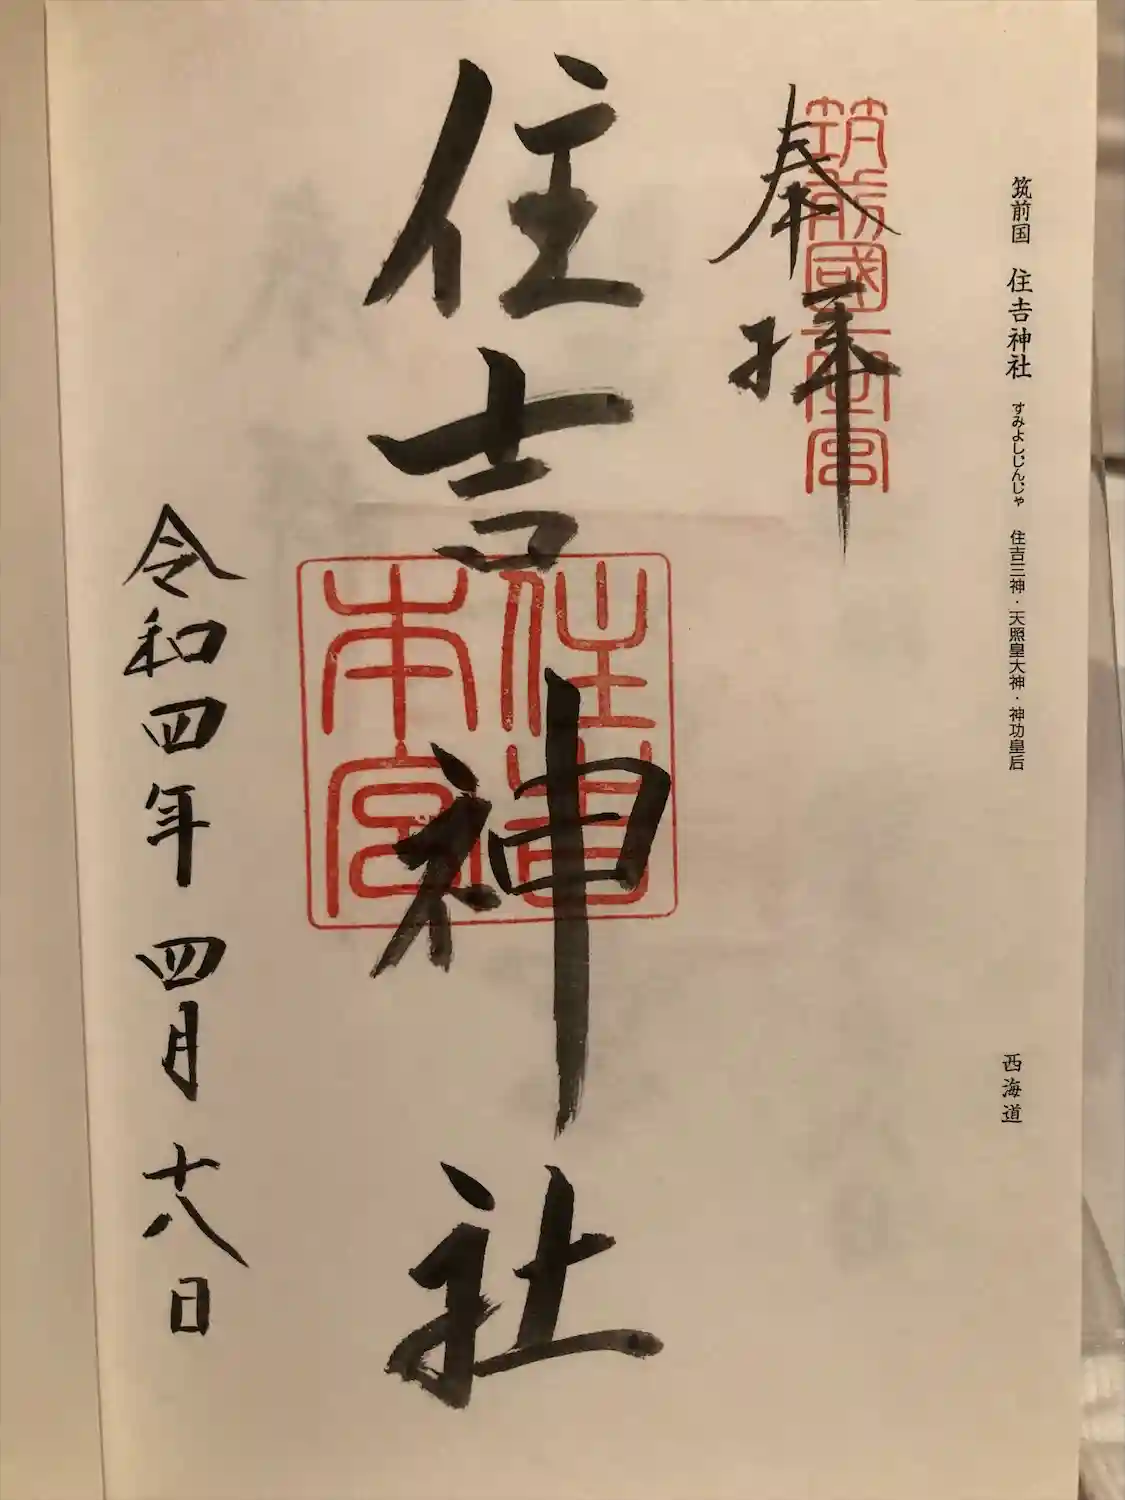 筑前国 住吉神社 すみよしじんじゃ 住吉三神・天照皇大神・神功皇后 西海道
奉拝
筑前國一宮
住吉神社
住吉本宮
令和四年 四月 十八日